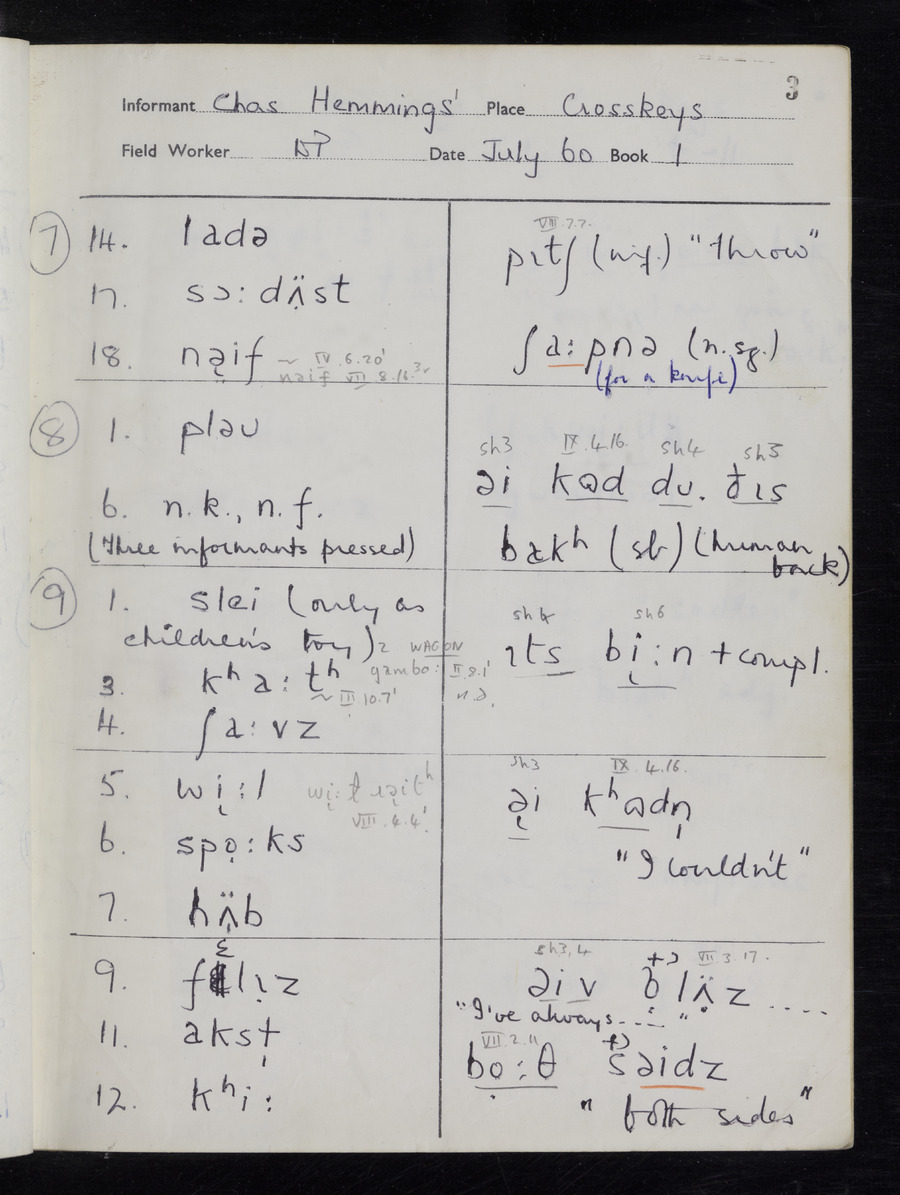 3
Informant Chas Hemmings' Place Crosskeys
Field Worker DP Date July 60 Book 1
7 14. ladə
VII.7.7.
pɪtʃ (inf.) "throw"
17. sɔ: dʌ̣̈st
18. nə̣if ~ IV 6.20'
nəif VII 8.16.
ʃa: pnə (n.sg.)
(for a knife)
8 1. pləu
sh3 IX.4.16. sh4 sh5
əi kɑd du. ðɪs
6. n.k., n.f.
(Three informants pressed)
bækʰ (sb) (human back)
9 1. slei (only as
children's toy) 2 WAGON
gambo: II 8.1'
n.a.
3. kʰa: tʰ ~ III 10.7'
4. ʃa: vz
sh6
ɪts bi̞:n + compl.
5. wi̞:l
VIII.4.4'.
sh3 IX.4.16.
ə̣i kʰɑdn̩
"I couldn't"
6. spọ:ks
7. hʌ̈b
9. fɛlɪ̣z
sh3,4 VII.3.17.
əiv ɔ lʌ̈z ....
"I've always...."
11. akst̩
VII.2.11
bọ:θ səidz
"both sides"
12. kʰi: